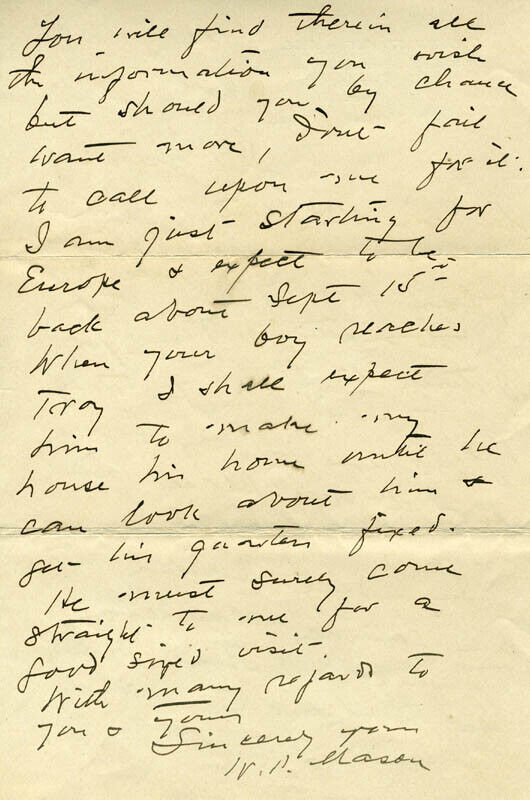 You will find therein all
the information you wish
but should you by chance
want more, Don't fail
to call upon me for it.
I am just starting for
Europe & expect to be
back about Sept 15th
When your boy reaches
Troy I shall expect
him to make my
house his home until he
can look about him &
get his quarters fixed.
He must surely come
straight to me for a
good sized visit.
With many regards to
you & yours
Sincerely yours
W. P. Mason